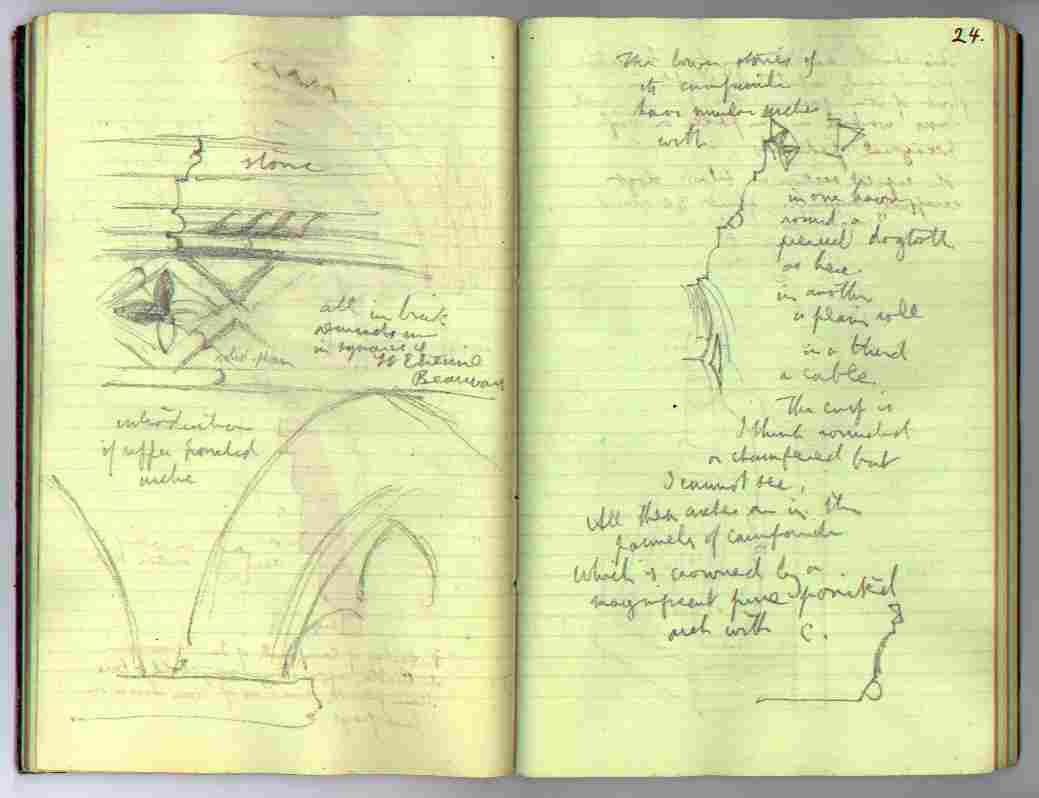 stone
all in brick
in squares of
St Etienne
Beauvais
introduction
of upper pointed
arche
24.
The lower stories of
its campanile
have similar arches
with
in one
round a
pierced dogtooth
as here
in another
a plain roll
in a third
a cable.
The cusp is
I think rounded
or chamfered but
I cannot see,
All these arches are in the
pannels of campanile
which is crowned by a
magnificent pure pointed
arch with C.